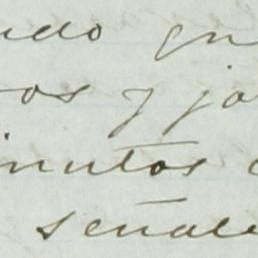 ndo qu
os y jo
inutos
señale